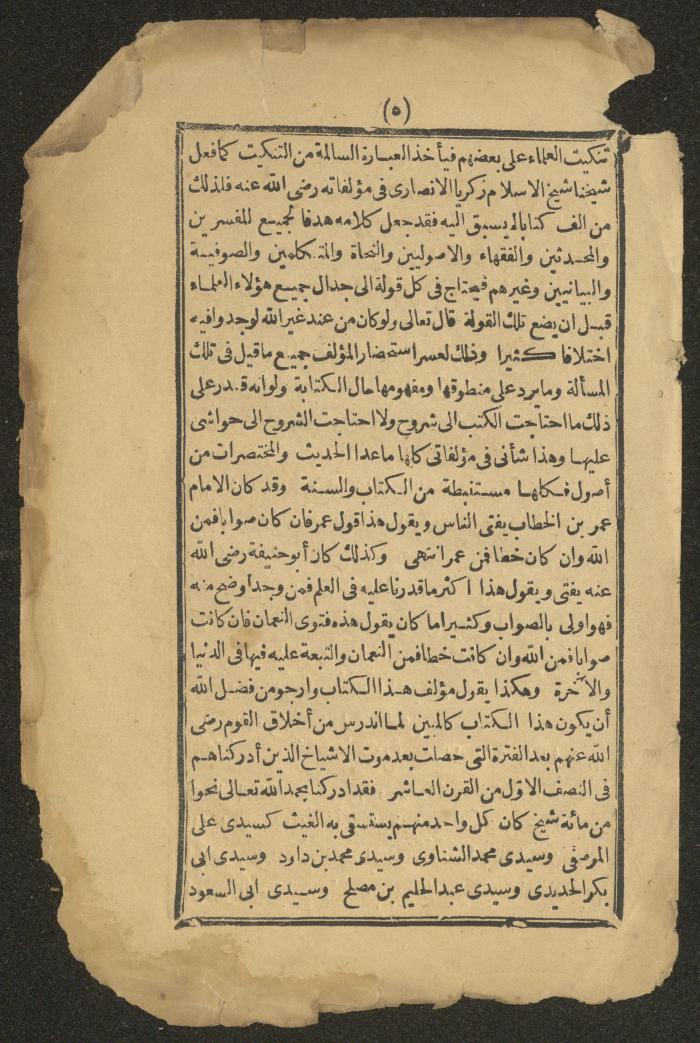 (٥)
تنكيت العلماء على بعضهم فيأخذ العبارة السالمة من التنكيت كما فعل
شيخنا شيخ الاسلام زكريا الانصارى فى مؤلفاته رضى الله عنه فلذلك
من الف كتابا لم يسبق اليه فقد جعل كلامه هدفا لجميع المفسرين
والمحدثين والفقهاء والاصوليين والنحاة والمتكلمين والصوفية
والبيانيين وغيرهم فيحتاج فى كل قولة الى جدال جميع هؤلاء العلماء
قبل ان يضع تلك القولة قال تعالى ولو كان من عند غير الله لوجدوا فيه
اختلافا كثيرا وذلك لعسر استحضار المؤلف جميع ما قيل فى تلك
المسألة وما يرد على منطوقها ومفهومها حال الكتابة ولو انه قدر على
ذلك ما احتاجت الكتب الى شروح ولا احتاجت الشروح الى حواشى
عليها وهذا شأنى فى مؤلفاتى كلها ما عدا الحديث والمختصرات من
أصول فكلها مستنبطة من الكتاب والسنة وقد كان الامام
عمر بن الخطاب يفتى الناس ويقول هذا قول عمر فان كان صوابا فمن
الله وان كان خطا فمن عمر انتهى وكذلك كان أبو حنيفة رضى الله
عنه يفتى ويقول هذا اكثر ما قدرنا عليه فى العلم فمن وجد اوضح منه
فهو اولى بالصواب وكثيرا ما كان يقول هذه فتوى النعمان فان كانت
صوابا فمن الله وان كانت خطا فمن النعمان والتبعة عليه فيها فى الدنيا
والآخرة وهكذا يقول مؤلف هذا الكتاب وارجو من فضل الله
أن يكون هذا الكتاب كالمبين لما اندرس من أخلاق القوم رضى
الله عنهم بعد الفترة التى حصلت بعد موت الاشياخ الذين أدركناهم
فى النصف الاول من القرن العاشر فقد ادركنا بحمد الله تعالى نحوا
من مائة شيخ كان كل واحد منهم يستسقى به الغيث كسيدى على
المرصفى وسيدى محمد الشناوى وسيدى محمد بن داود وسيدى ابى
بكر الحديدى وسيدى عبد الحليم بن مصلح وسيدى ابى السعود